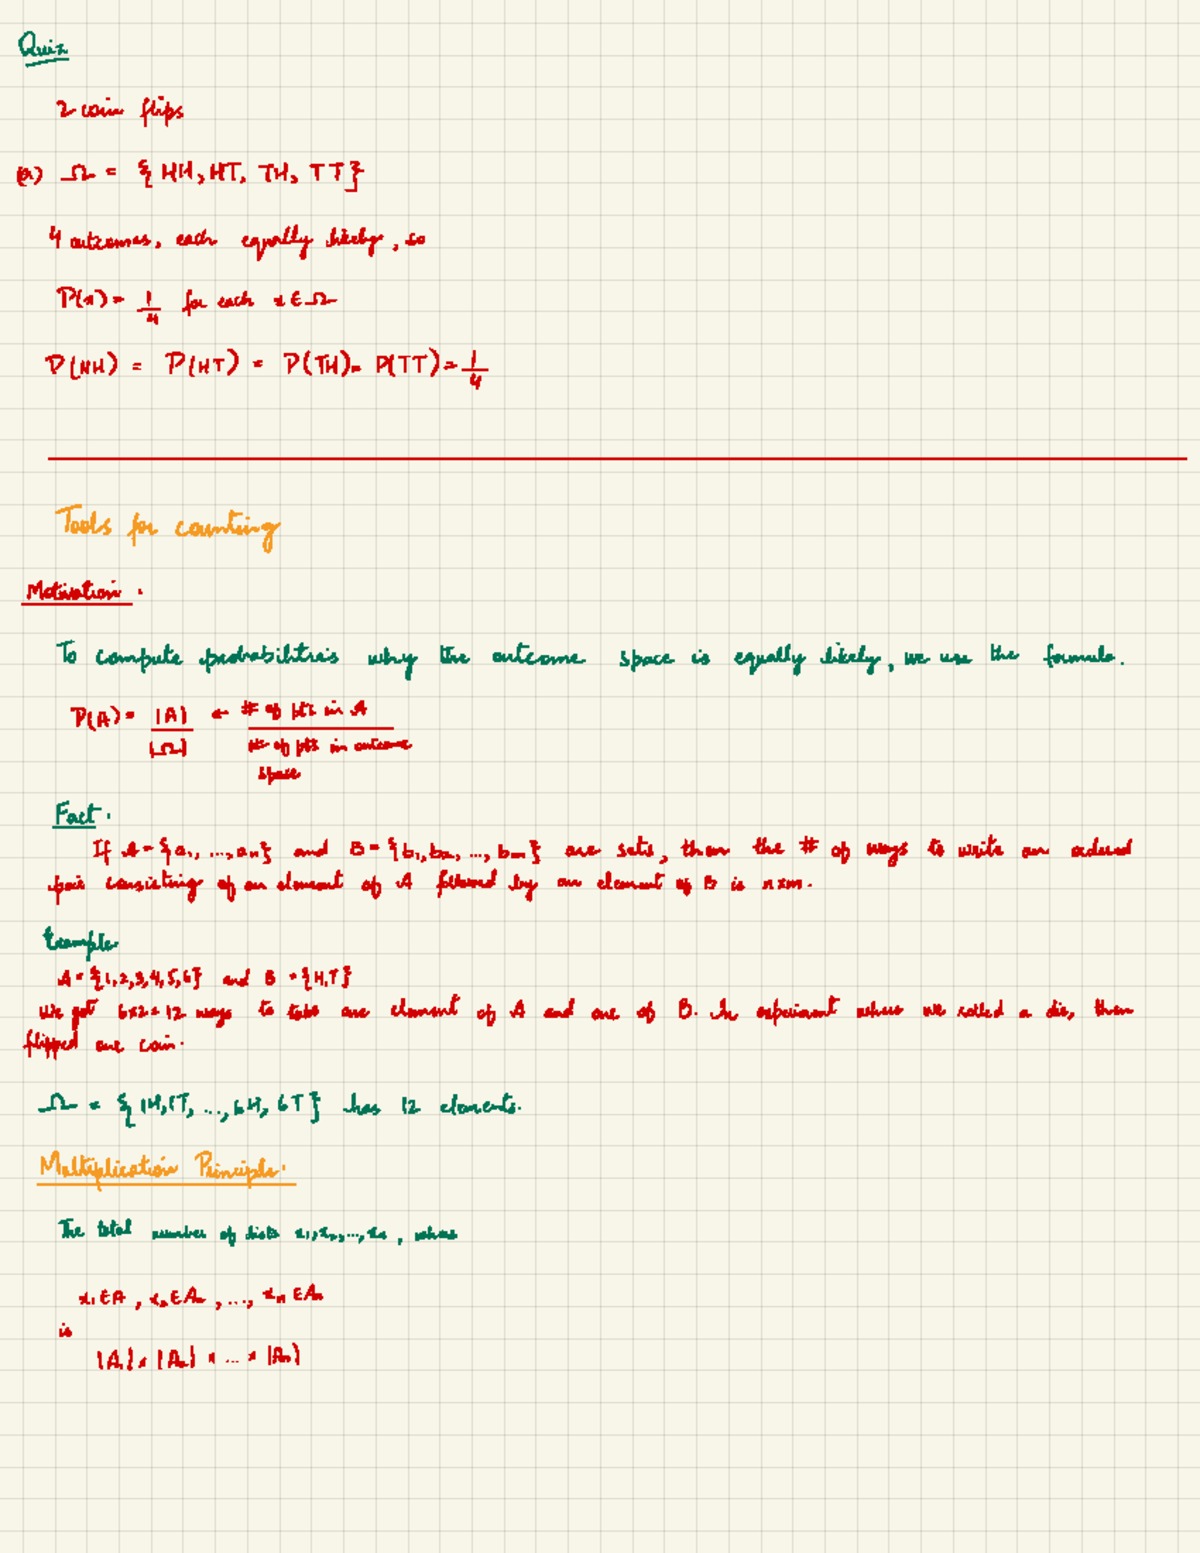 Quiz
2 coin flips
(a) Ω = {HH, HT, TH, TT}
4 outcomes, each equally likely, so
P(x) = 1/4 for each x ∈ Ω
P(HH) = P(HT) = P(TH) = P(TT) = 1/4
Tools for counting
Motivation.
To compute probabilities why the outcome space is equally likely, we use the formula.
P(A) = |A|/|Ω| ← # of pts in A / # of pts in outcome space
Fact.
If A = {a1, ..., an} and B = {b1, b2, ..., bm} are sets, then the # of ways to write an ordered
pair consisting of an element of A followed by an element of B is n×m.
Example
A = {1,2,3,4,5,6} and B = {H,T}
We get 6×2 = 12 ways to take one element of A and one of B. In experiment where we rolled a die, then
flipped one coin.
Ω = {1H, 1T, ..., 6H, 6T} has 12 elements.
Multiplication Principle.
The total number of lists x1, x2, ..., xn, where
x1 ∈ A, x2 ∈ A2, ..., xn ∈ An
is
|A1| × |A2| × ... × |An|